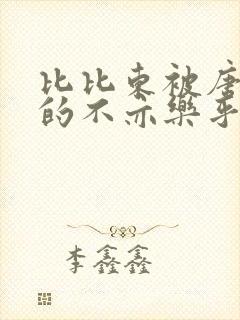 比比东被唐
的不亦乐乎
李鑫鑫